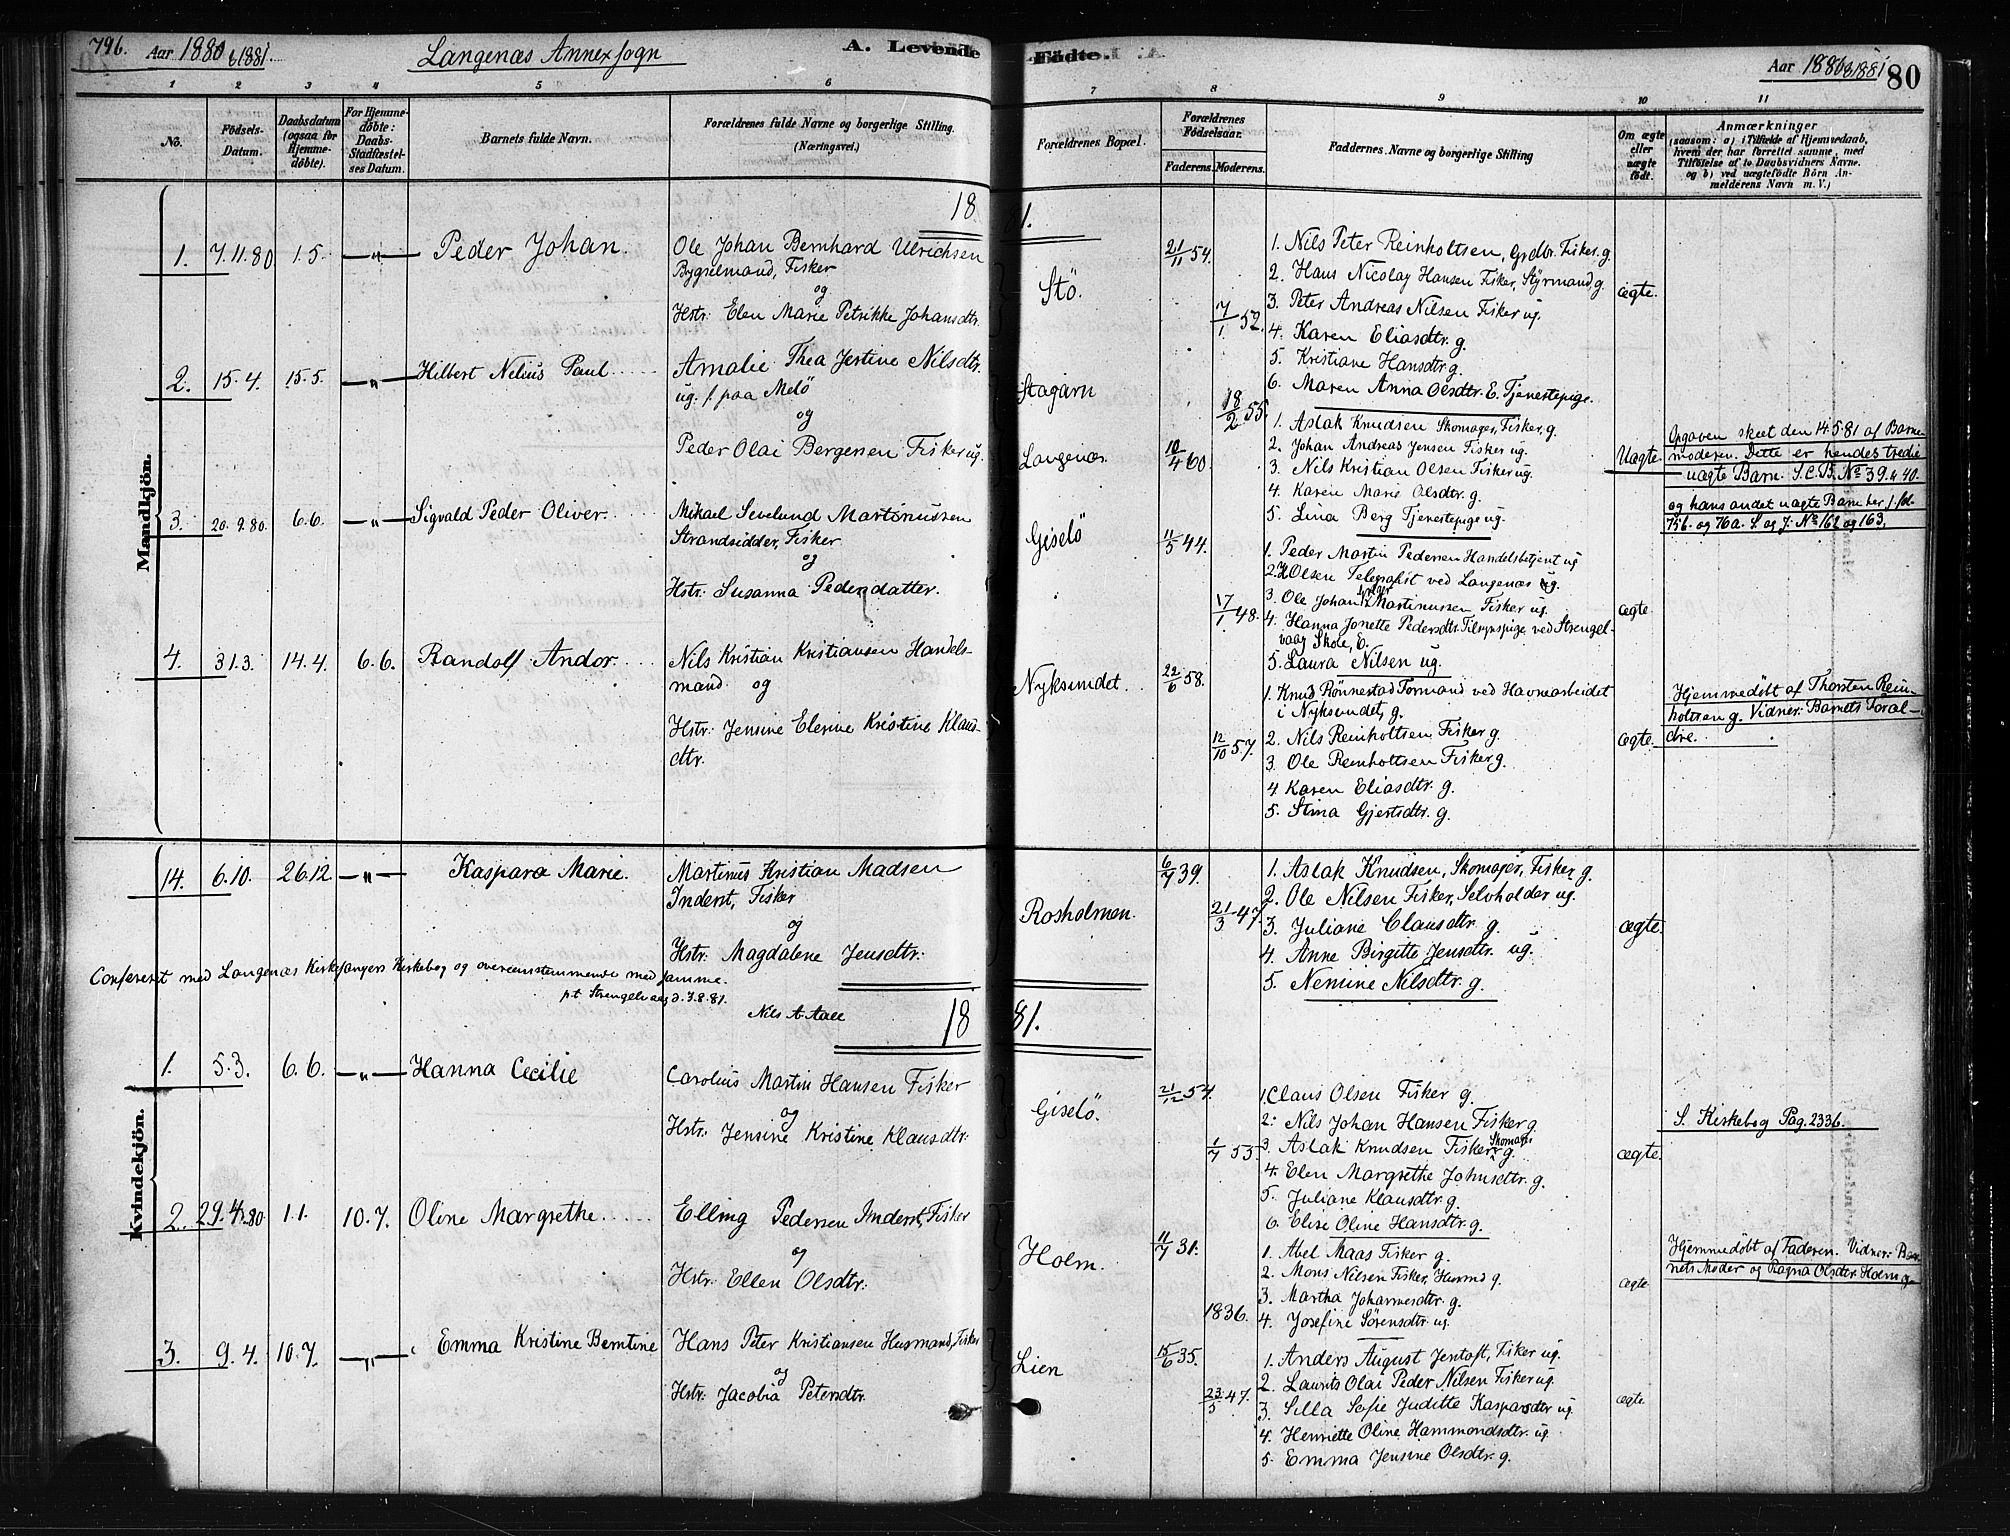 79b. Aar 1880 & 1881. Langenæs Annexsogn A. Levende
1 2 3 4 5 6
No.
Fødsels-Datum.
Daabsdatum (ogsaa for Hjemmedøbte).
For Hjemmedøbte: Daabs-Stadfæstelses Datum.
Barnets fulde Navn.
Forældrenes fulde Navne og borgerlige Stilling. (Næringsvei.)
Mandkjön.
18
1. 7.11.80 1.5. —"— Peder Johan. Ole Johan Bernhard Ulrichsen
Bygselmand, Fisker
og
Hstr: Elen Marie Petrikke Johansdtr.
2. 15.4. 15.5. —"— Hilbert Nelius Paul Amalie Thea Jertine Nilsdtr.
ug. f. paa Melö
og
Peder Olai Bergersen Fisker ug.
3. 20.9.80. 6.6. —"— Sigvald Peder Oliver. Mikael Sevelund Martinussen
Strandsidder, Fisker
og
Hstr: Susanna Pedersdatter.
4. 31.3. 14.4. 6.6. Randolf Andor. Nils Kristian Kristiansen Handels-
mand og
Hstr: Jensine Elerine Kristine Klaus-
dtr.
14. 6.10. 26.12 —"— Kaspara Marie. Martinus Kristian Madsen
Inderst, Fisker
og
Hstr: Magdalene Jensdtr:
Confereret med Langenæs Kirkesangers Kirkebog og overensstemmende med samme.
p.t. Strengelvaag d. 7.8.81.
Nils A. Aall
18
Kvindekjön.
1. 5.3. 6.6. —"— Hanna Cecilie Carolius Martin Hansen Fisker
og
Hstr: Jensine Kristine Klausdtr:
2. 29.4.80 1.1. 10.7. Oline Margrethe. Elling Pedersen Inderst, Fisker
og
Hstr: Ellen Olsdtr:
3. 9.4. 10.7. —"— Emma Kristine Berntine Hans Peter Kristiansen Husmand, Fisker
og
Hstr: Jacobia Petersdtr.
Födte. Aar 1880 & 1881 80
7 8 9 10 11
Forældrenes Bopæl.
Forældrenes Födselsaar.
Faderens. Moderens.
Faddernes Navne og borgerlige Stilling
Om ægte eller uægte födt.
Anmærkninger
(saasom: a) i Tilfælde af Hjemmedaab, hvem der har forrettet samme, med Tilföielse af to Daabsvidners Navne. og b) ved uægtefödte Börn Anmelderens Navn m. V.)
81.
Stö. 21/11 54. 7/1 52.
1. Nils Peter Reinholtsen, Grdbr. Fisker. g.
2. Hans Nicolay Hansen Fisker, Styrmand, g. ægte.
3. Peter Andreas Nilsen Fisker ug.
4. Karen Eliasdtr. g.
5. Kristiane Hansdtr. g.
6. Maren Anna Olsdtr. E. Tjenestepige.
Skagarn 18/2 55.
Langenæs 10/4 60.
1. Aslak Knudsen Skomager, Fisker, g.
2. Johan Andreas Jensen Fisker ug.
3. Nils Kristian Olsen Fisker ug. Uægte.
4. Karen Marie Olsdtr. g.
5. Lina Berg Tjenestepige ug.
Opgaven skeet den 14.5.81 af Barne-
moderen. Dette er hendes tredie
uægte Barn. S.C.B. No 39 & 40.
og hans andet uægte Barn her j. fol.
75b. og 76a. S. og J. No 162 og 163.
Giselö 11/5 44. 17/1 48.
1. Peder Martin Pedersen Handelsbetjent ug
2. H Olsen Telegrafist ved Langenæs ug.
3. Ole Johan Martinussen Fisker ug. ægte
4. Hanna Jonette Pedersdtr. Tilsynspige ved Strengel-
vaag Skole, E.
5. Laura Nilsen ug.
Nyksundet. 22/6 58. 12/10 57.
1. Knud Rönnestad Formand ved Havnearbeidet
i Nyksundet, g.
2. Nils Reinholtsen, Fisker g. ægte.
3. Ole Reinholtsen Fisker g.
4. Karen Eliasdtr. g.
5. Stina Gjertsdtr. g.
Hjemmedöbt af Thorsten Rein-
holtsen g. Vidner: Barnets Foræl-
dre.
Rosholmen. 6/7 39. 21/3 47.
1. Aslak Knudsen, Skomager, Fisker g.
2. Ole Nilsen Fisker, Selvholder ug.
3. Juliane Clausdtr. g. ægte.
4. Anne Birgitte Jensdtr. ug.
5. Nemine Nilsdtr. g.
81.
Giselö. 21/12 54. 1/7 55.
1. Claus Olsen Fisker g.
2. Nils Johan Hansen Fisker g.
3. Aslak Knudsen Fisker, Skomager g. ægte.
4. Elen Margrethe Johnsdtr. g.
5. Juliane Klausdtr. g.
6. Elise Oline Hansdtr. g.
S. Kirkebog Pag. 233b.
Holm. 11/7 31. 1836.
1. Abel Maas Fisker g.
2. Mons Nilsen Fisker, Husmd g. ægte
3. Martha Johannesdtr. g.
4. Josefine Sörensdtr ug.
Hjemmedöbt af Faderen. Vidner: Bar-
nets Moder og Ragna Olsdtr. Holm g.
Lien 15/6 35. 23/5 47.
1. Anders August Jentoft, Fisker ug.
2. Laurits Olai Peder Nilsen Fisker ug.
3. Silla Sofie Juditte Kaspersdtr ug. ægte
4. Henriette Oline Hammondsdtr. ug.
5. Emma Jensine Olsdtr. g.